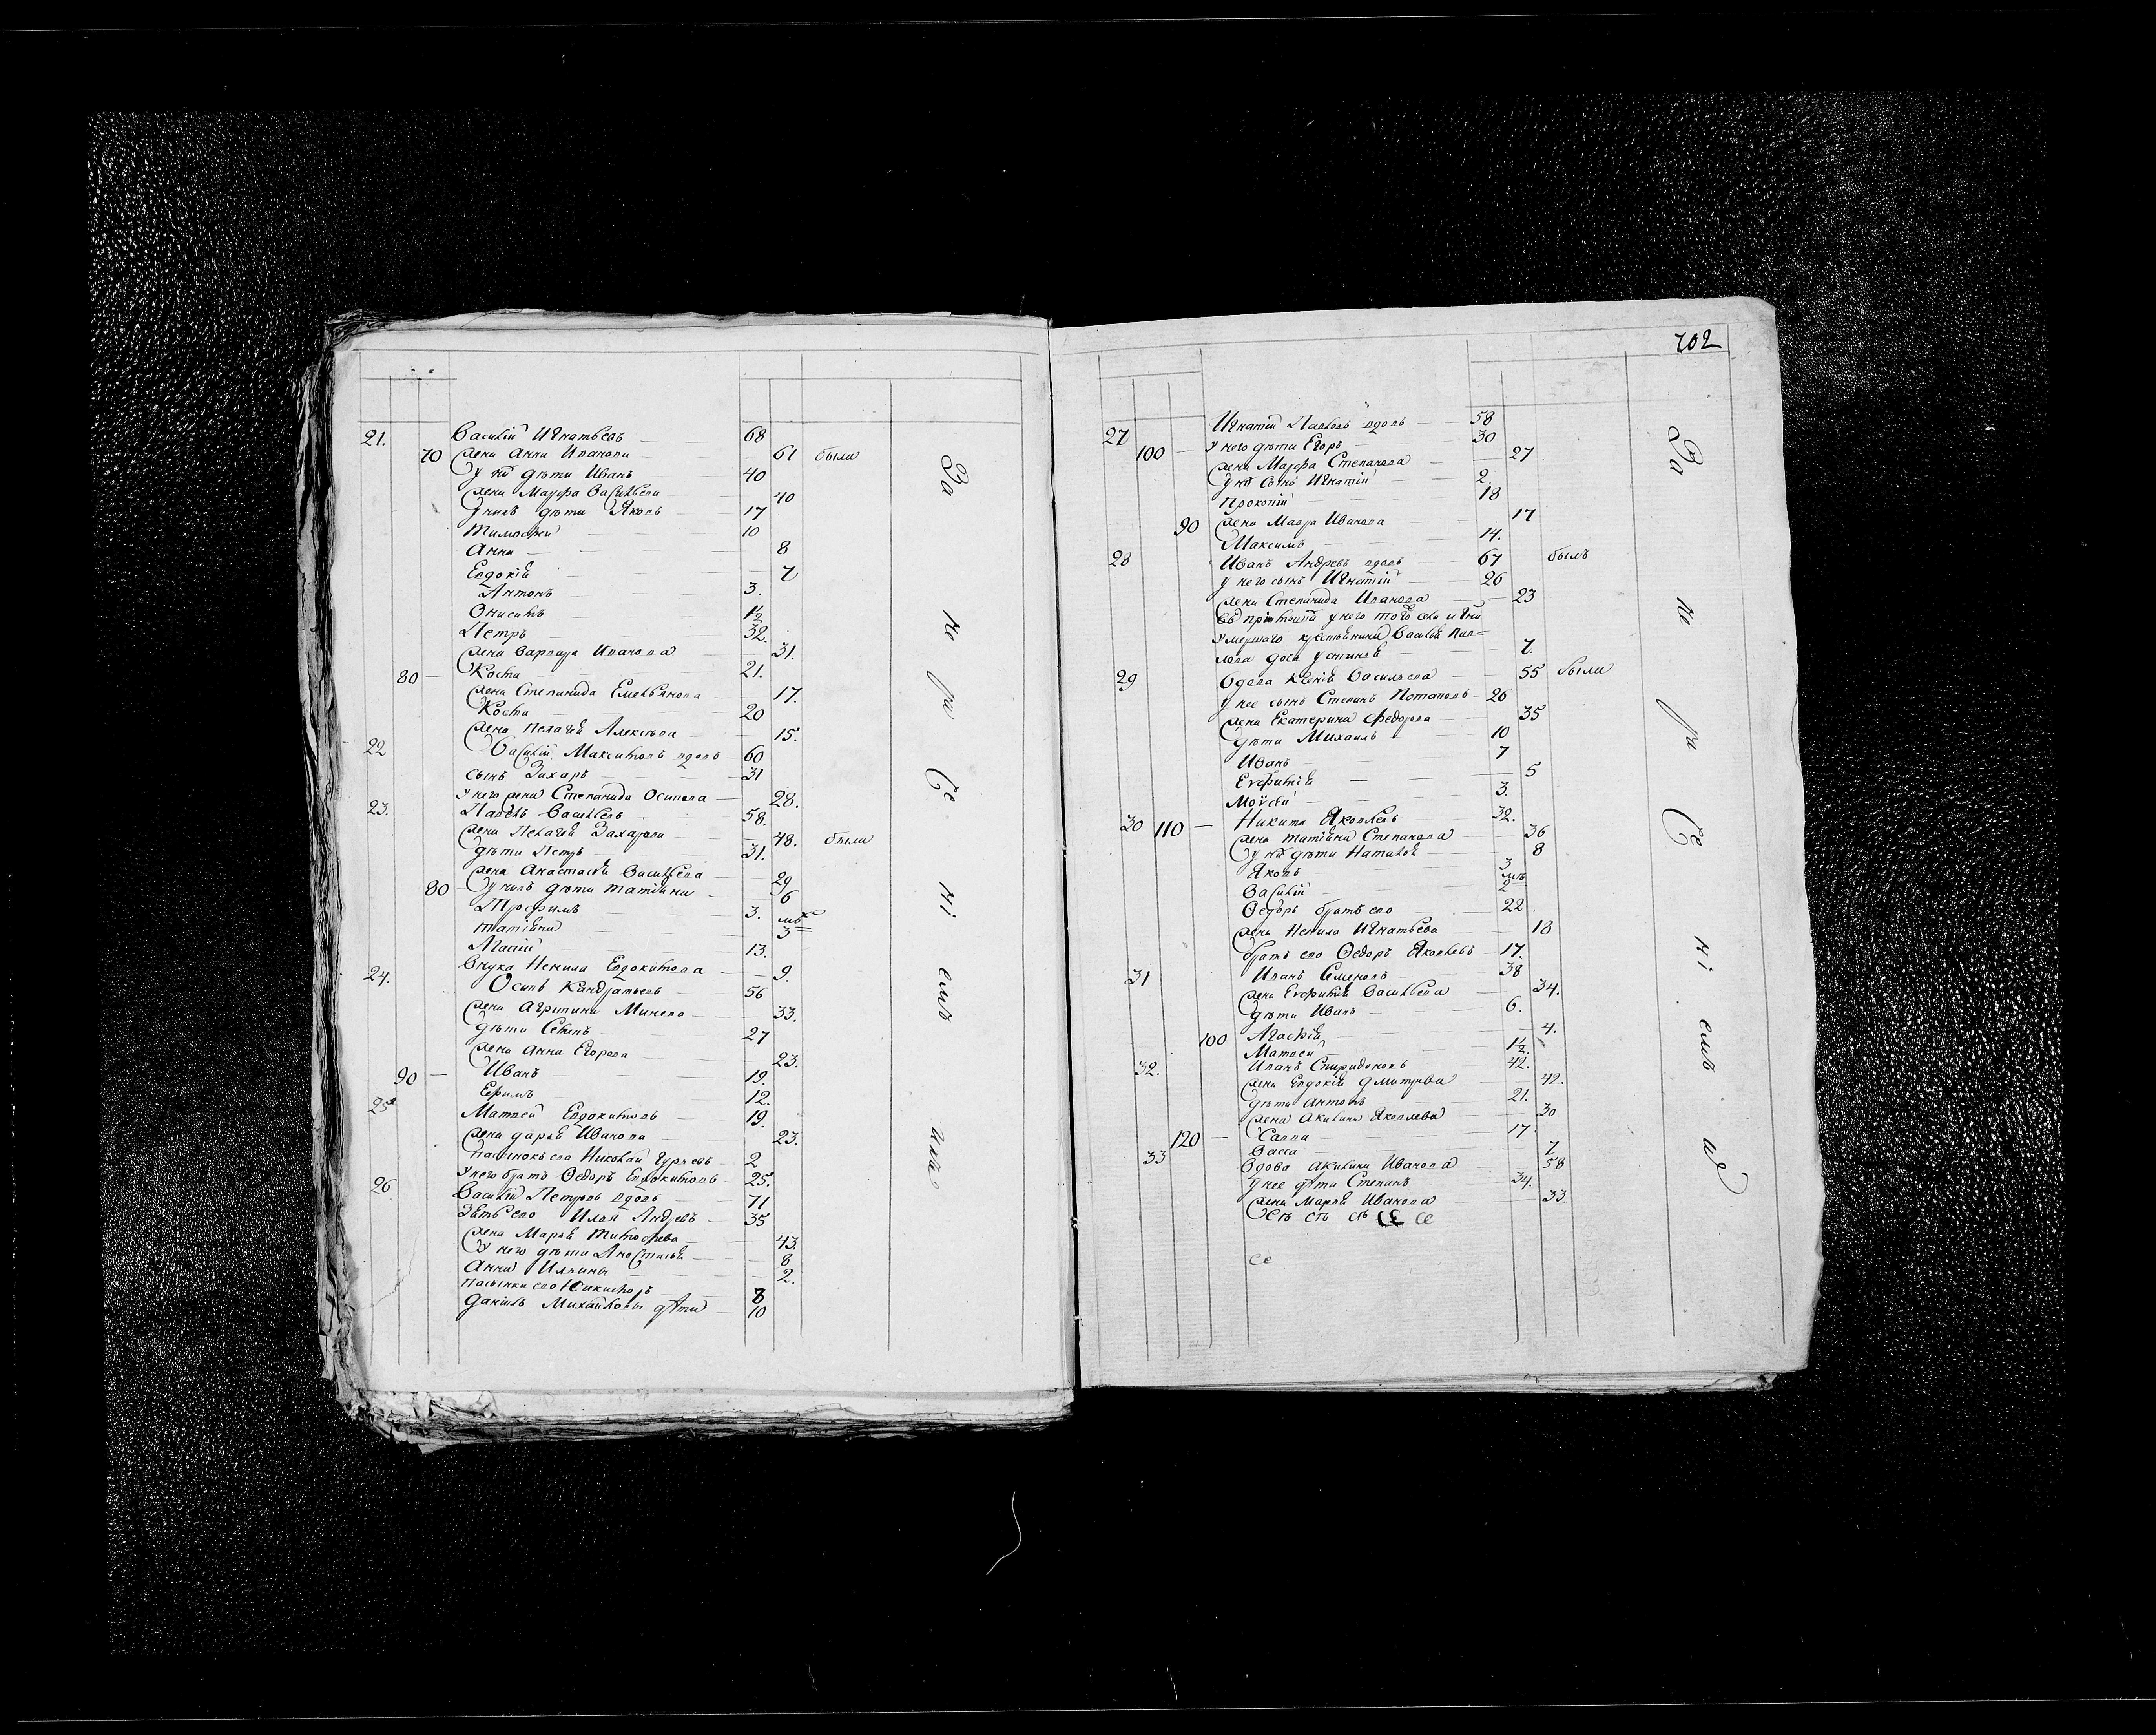 21. Василій Игнатьевъ 68
70 жена Анна Иванова 61 были
У нй дѣти Иванъ 40
жена Марфа Васильева 40
У нихъ дѣти Яковъ 17
Тимофей 10
Анна 8
Евдокія 7
Антонъ 3.
Онисимъ 1½
Петръ 32.
жена Варвара Иванова 31.
80 Коста 21.
жена Степанида Емельянова 17.
Коста 20
жена Пелагея Алексѣева 15.
22 Василій Максимовъ вдовъ 60
сынъ Захаръ 31
У него жена Степанида Осипова 28.
23. Павелъ Васильевъ 58.
жена Пелагея Захарова 48. были
дѣти Петръ 31.
жена Анастасія Васильева 29
80 У нихъ дѣти Татіяна 6
Трофимъ 3.
Татіяна мѣ 3
13.
Внука Ненила Евдокимова 9.
24. Осипъ Кандратьевъ 56
жена Агрипина Минева 33.
дѣти Семенъ 27
жена Анна Егорова 23.
90 Иванъ 19.
Ефимъ 12.
25 Матвей Евдокимовъ 19.
жена Дарья Иванова 23.
Пасынокъ ево Николай Гурьевъ 2
У него братъ Ѳедоръ Евдокимовъ 25.
26 Василій Петровъ вдовъ 71
Зять ево Илья Андревъ 35
жена Марья Тимофева 43.
У него дѣти Анастасія 8
Анна Ильины 2.
пасынки ево Никифоръ 8
Данила Михайловы дѣти 10
За не ра Че ні емъ ихъ
702
27 Игнатій Павловъ вдовъ 58
100 У него дѣти Егоръ 30
жена Марфа Степанова 27
У нй сынъ Игнатій 2.
Прокопій 18
90 жена Мавра Иванова 17
Максимъ 14.
28 Иванъ Андревъ вдовъ 67 былъ
У него сынъ Игнатій 26
жена Степанида Иванова 23
умершаго крестьянина Василья Пав=
лова дочь Устинья 7.
29 Вдова Ксенія Васильева 55 были
У нее сынъ Степанъ Потаповъ 26
жена Екатерина Федорова 35
дѣти Михаилъ 10
Иванъ 7
Евфимія 5
Моѵсей 3.
30 110 Никита Яковлевъ 32.
жена Татіяна Степанова 36
У нй дѣти Наталья 8
Яковъ 3
Василій мѣ 2
Ѳедоръ братъ ево 22
жена Ненила Игнатьева 18
братъ ево Ѳедоръ Яковлевъ 17.
31 Иванъ Семеновъ 38
жена Евфимія Васильева 34.
дѣти Иванъ 6.
100 Агафія 4.
Матвей 1½.
32. Иванъ Спиридоновъ 42.
жена Евдокія Дмитрева 42.
дѣти Антонъ 21.
жена Акилина Яковлева 30
120 Савва 17.
Васса 7
33 Вдова Акилина Иванова 58
У нее дѣти Степанъ 34.
жена Марья Иванова 33.
За не ра Че ні емъ